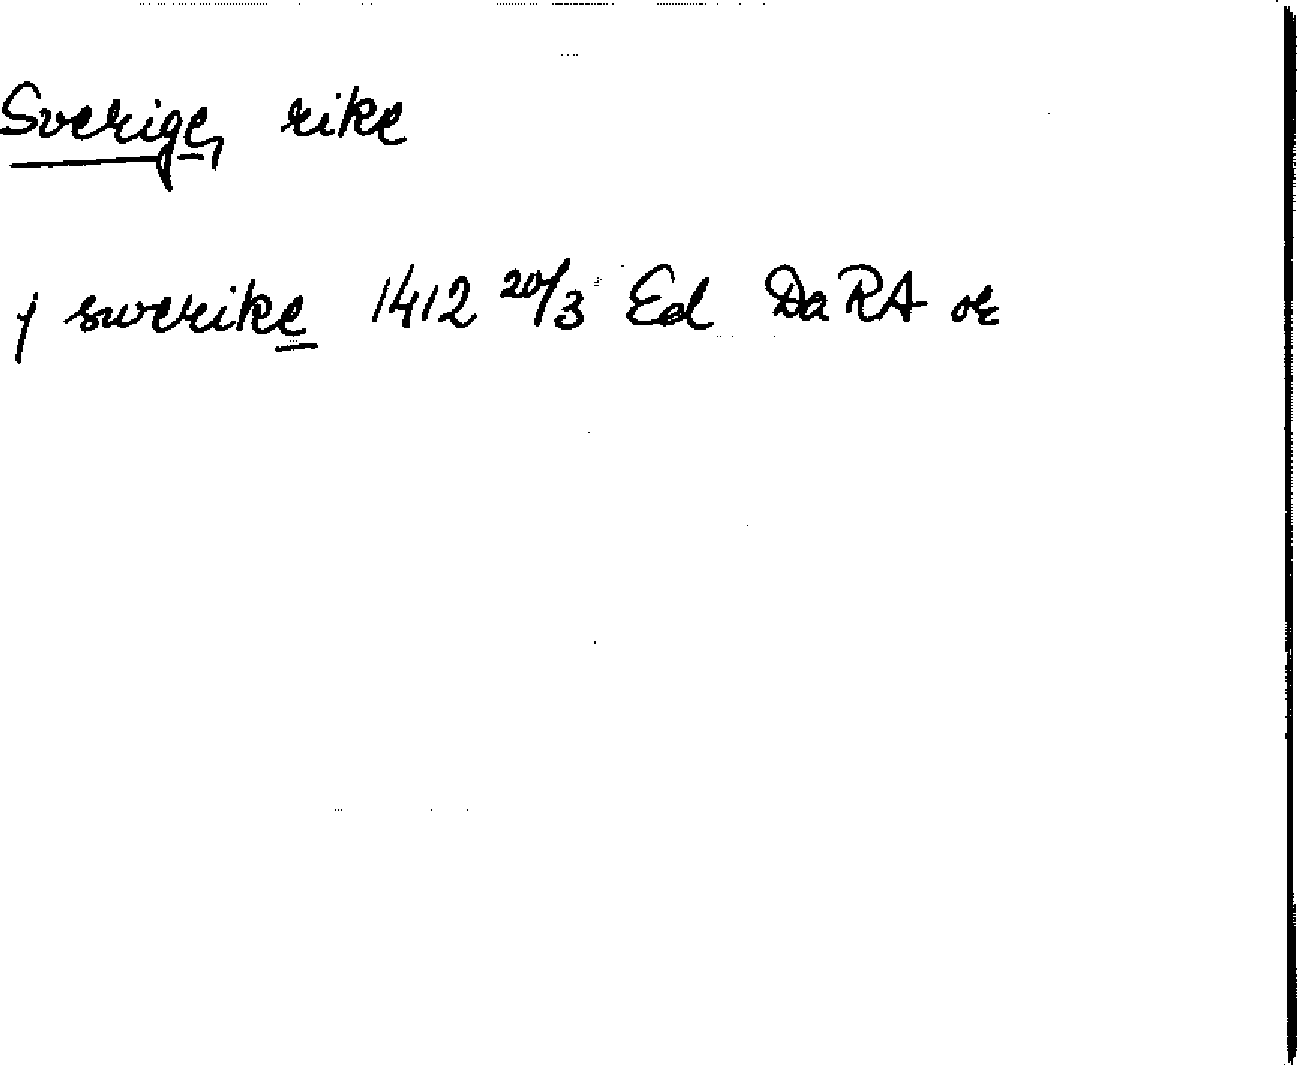 Sverige, rike
j swerike 1412 20/3 Ed DaRA or